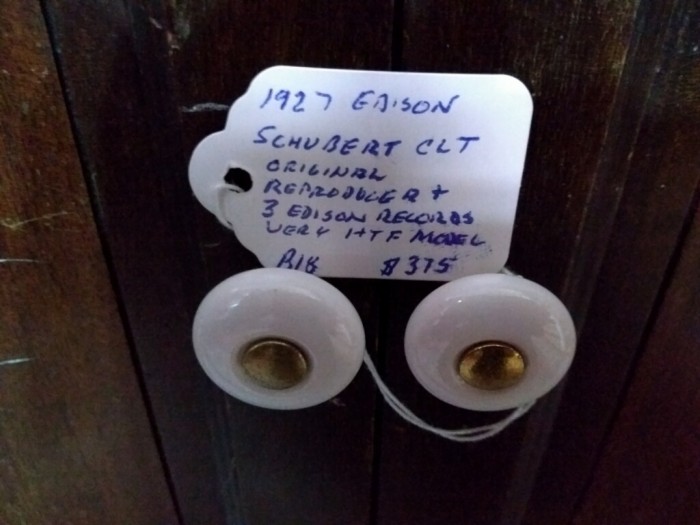 1927 EDISON
SCHUBERT CLT
ORIGINAL
REPRODUCER +
3 EDISON RECORDS
VERY HTF MODEL
B18 $375